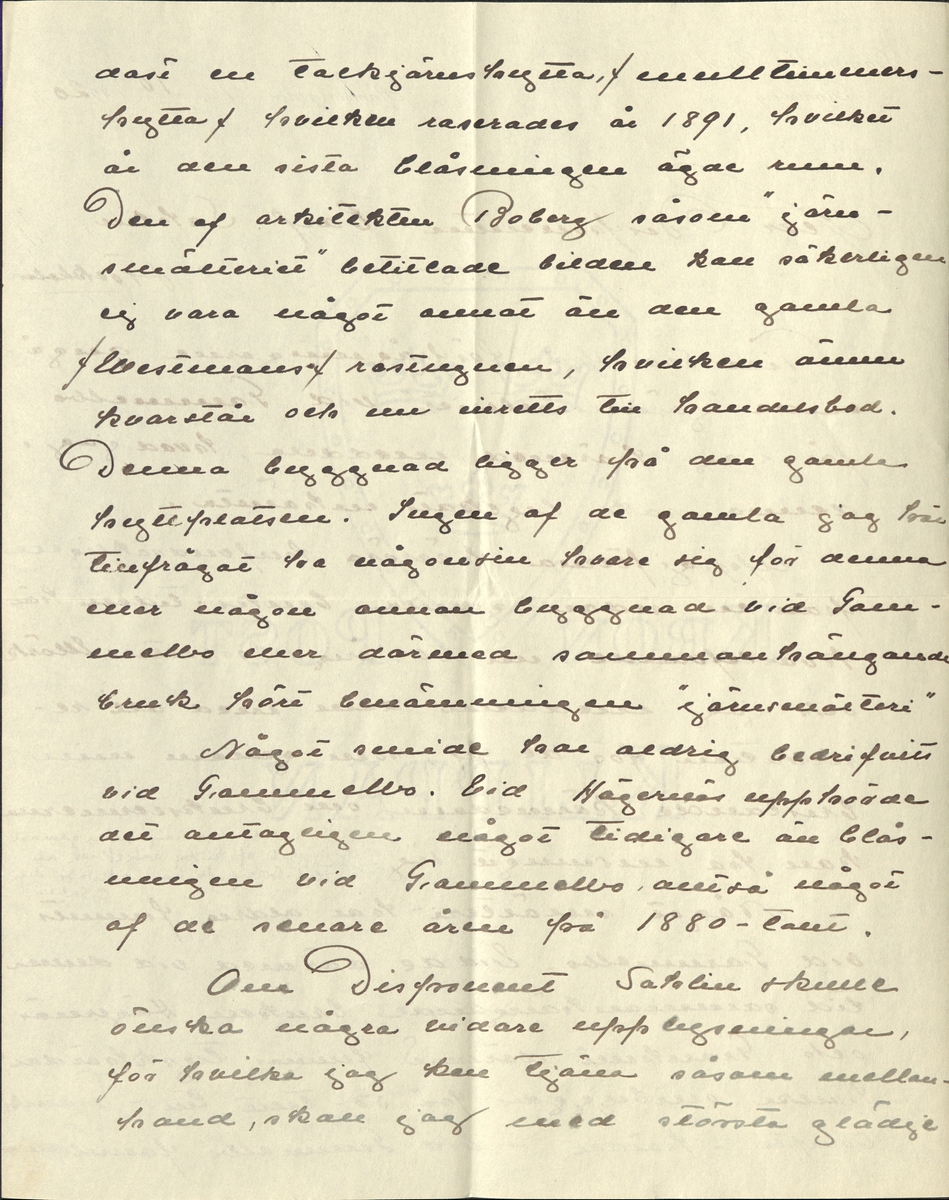 dast en tackjärnshytta, / mulltimmers-
hytta / hvilken raserades år 1891, hvilket
år den sista blåsningen ägde rum.
Den af arkitekten Boberg såsom "järn-
smälteriet" betitlade bilden kan säkerligen
ej vara något annat än den gamla
/Westmans/ rostugnen, hvilken ännu
kvarstår och nu inretts till handelsbod.
Denna byggnad ligger på den gamla
hytteplatsen. Ingen af de gamla jag här
tillfrågat ha någonsin hvare sig för denna
eller någon annan byggnad vid Gam-
melbo eller därmed sammanhängande
bruk hört benämningen "järnsmälteri"
Något smide har aldrig bedrifvits
vid Gammelbo. Vid Hägernäs upphörde
det antagligen något tidigare än blås-
ningen vid Gammelbo, alltså något
af de senare åren på 1880-talet.
Om Disponent Sahlin skulle
önska några vidare upplysningar,
för hvilka jag kan tjäna såsom mellan-
hand, skall jag med största glädje